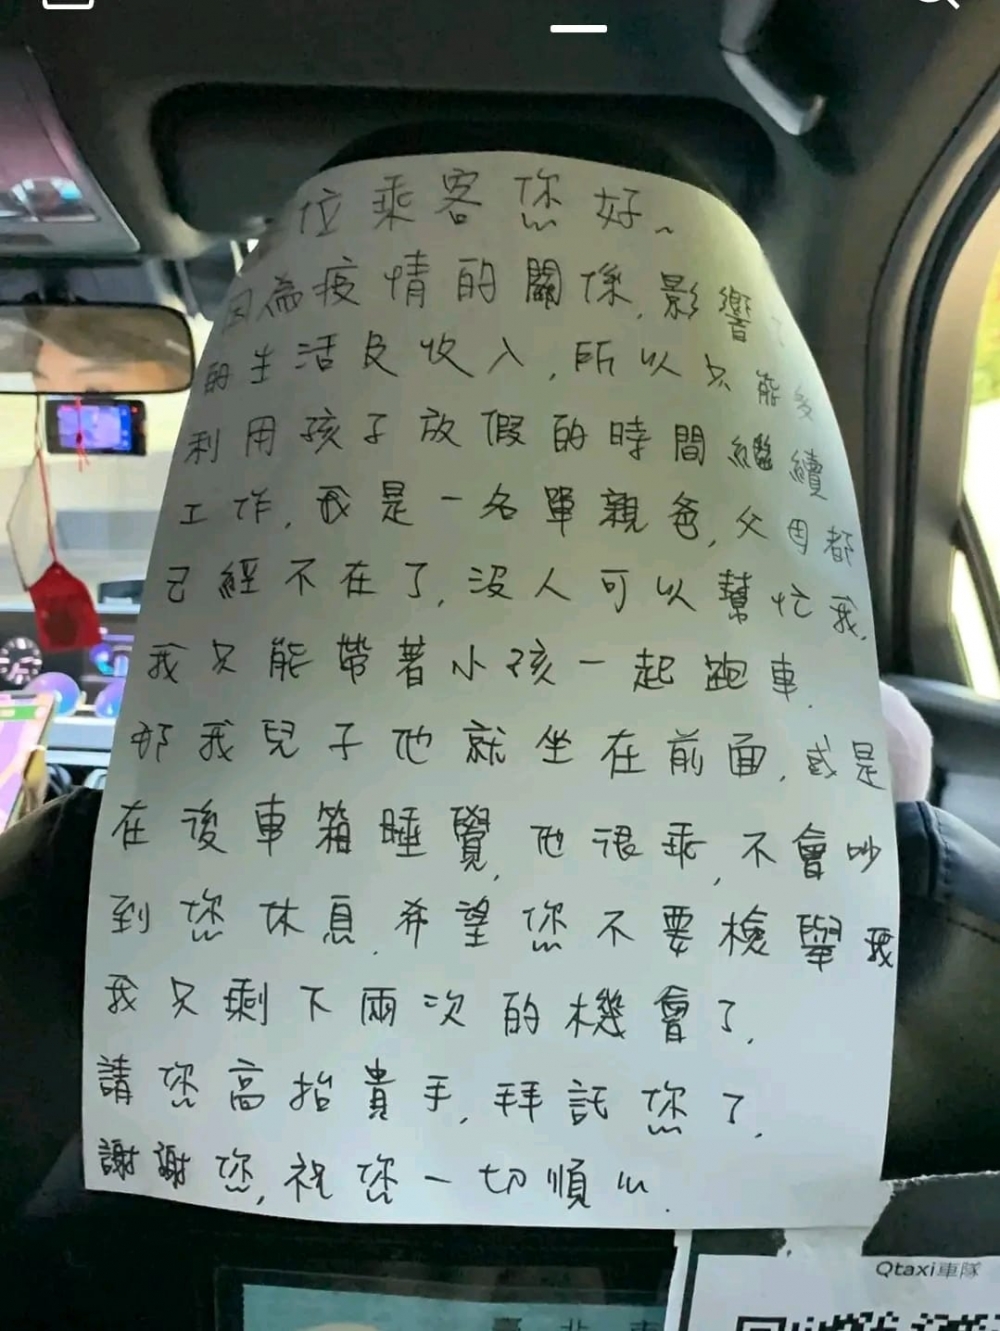 位乘客您好~
因為疫情的關係,影響了
的生活及收入,所以只能多
利用孩子放假的時間繼續
工作,我是一名單親爸,父母都
已經不在了,沒人可以幫忙我,
我只能帶著小孩一起跑車.
那我兒子他就坐在前面,或是
在後車箱睡覺,他很乖,不會吵
到您休息,希望您不要檢舉我
我只剩下兩次的機會了,
請您高抬貴手,拜託您了,
謝謝您,祝您一切順心.
Qtaxi車隊